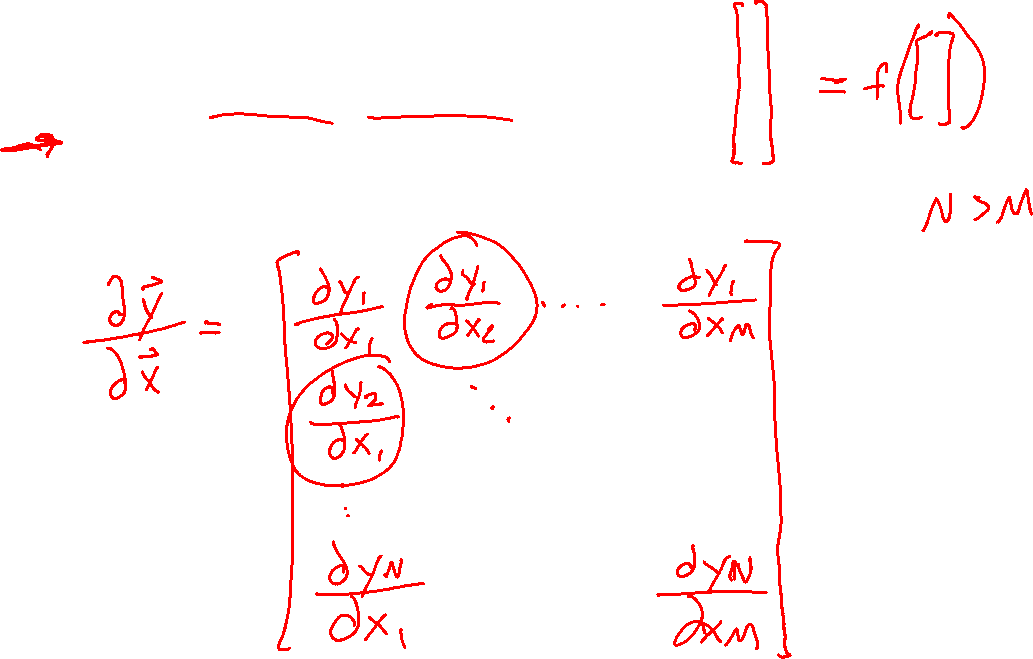 [ ] = f([ ])
N > M
∂y⃗/∂x⃗ = [ ∂y₁/∂x₁ ∂y₁/∂x₂ ... ∂y₁/∂x_M
∂y₂/∂x₁ ⋱
⋮
∂y_N/∂x₁ ∂y_N/∂x_M ]